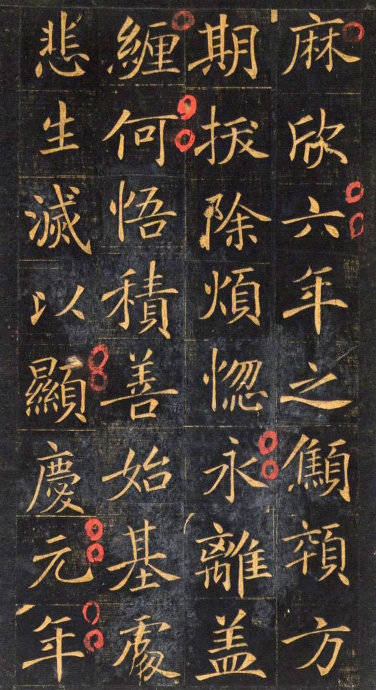 麻欣六年之顦顇方
期拔除煩惱永離盖
纏何悟積善始基處
悲生滅以顯慶元年